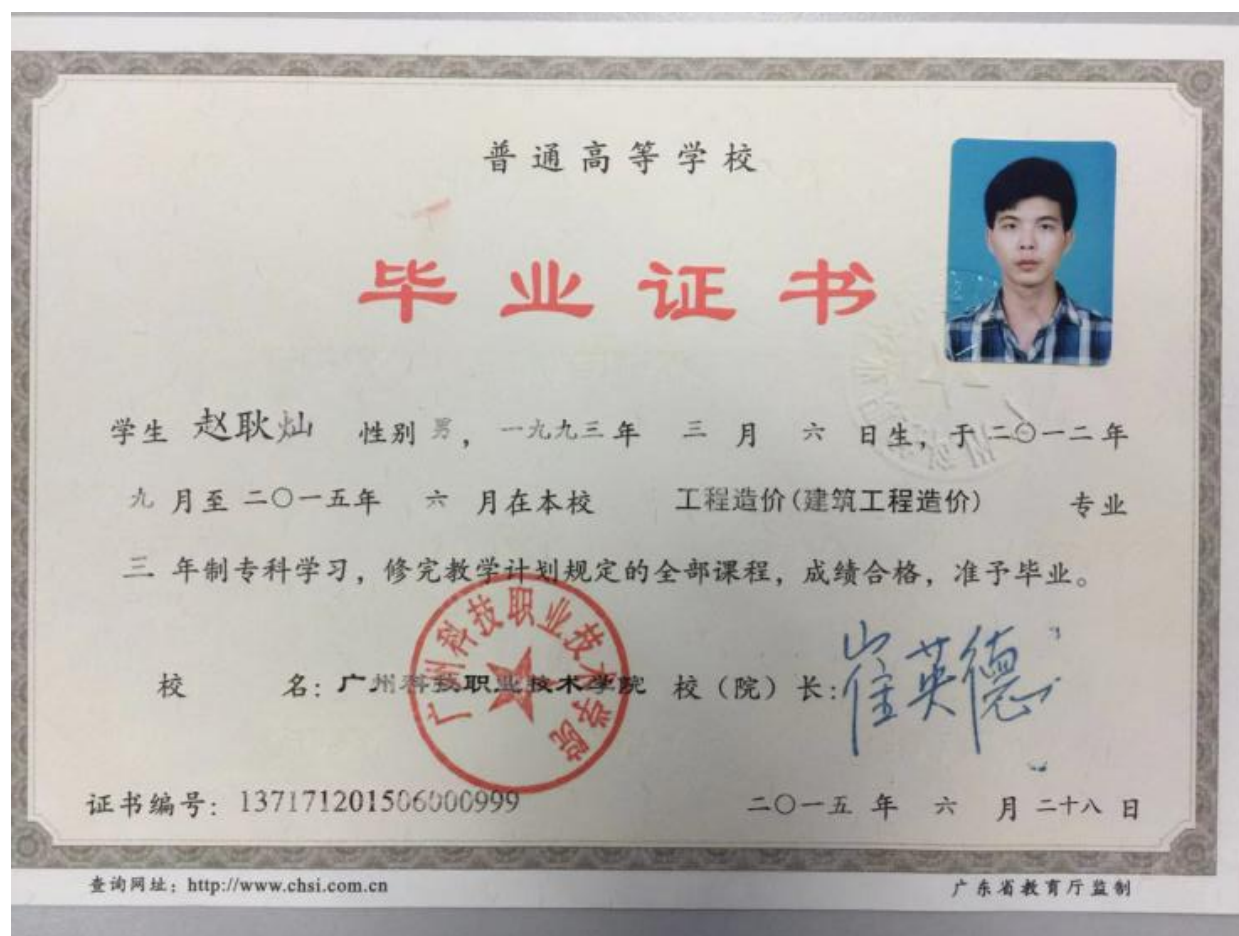 普通高等学校
毕业证书
学生 赵耿灿 性别 男，一九九三年 三 月 六 日生，于二〇一二年
九 月至 二〇一五年 六 月在本校 工程造价(建筑工程造价) 专业
三 年制专科学习，修完教学计划规定的全部课程，成绩合格，准予毕业。
校 名：广州科技职业技术学院 校（院）长：崔英德
广州科技职业技术学院
证书编号：137171201506000999 二〇一五 年 六 月 二十八 日
查询网址：http://www.chsi.com.cn 广东省教育厅监制